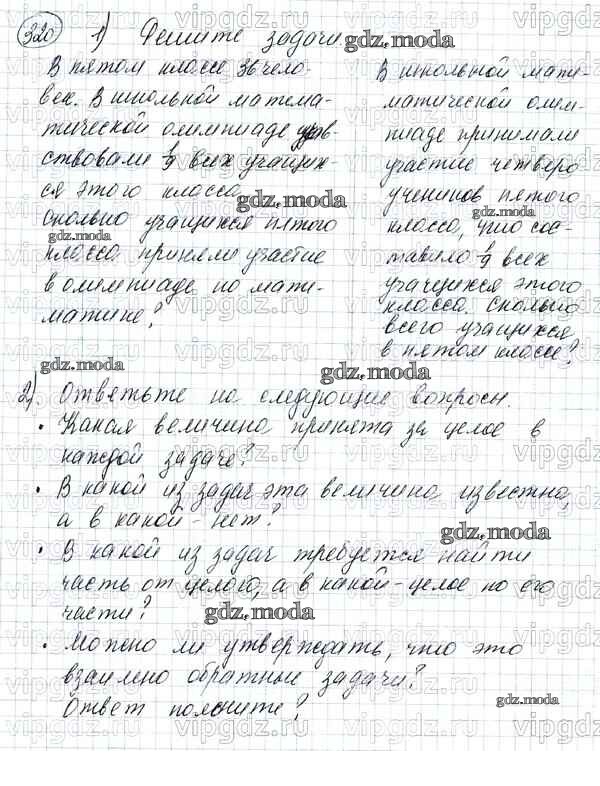 320 1) Решите задачи
В пятом классе 36 чело-
век. В школьной матема-
тической олимпиаде учав-
ствовали 1/9 всех учащих-
ся этого класса.
Сколько учащихся пятого
класса приняли участие
в олимпиаде по мате-
матике?
В школьной мате-
матической олим-
пиаде принимали
участие четверо
учеников пятого
класса, что сос-
тавило 1/9 всех
учащихся этого
класса. Сколько
всего учащихся
в пятом классе?
2) Ответьте на следующие вопросы.
• Какая величина принята за целое в
каждой задаче?
• В какой из задач эта величина известна,
а в какой - нет?
• В какой из задач требуется найти
часть от целого, а в какой - целое по его
части?
• Можно ли утверждать, что это
взаимно обратные задачи?
Ответ поясните?
gdz.moda
gdz.moda
gdz.moda
gdz.moda
gdz.moda
gdz.moda
gdz.moda
gdz.moda
gdz.moda
vipgdz.ru